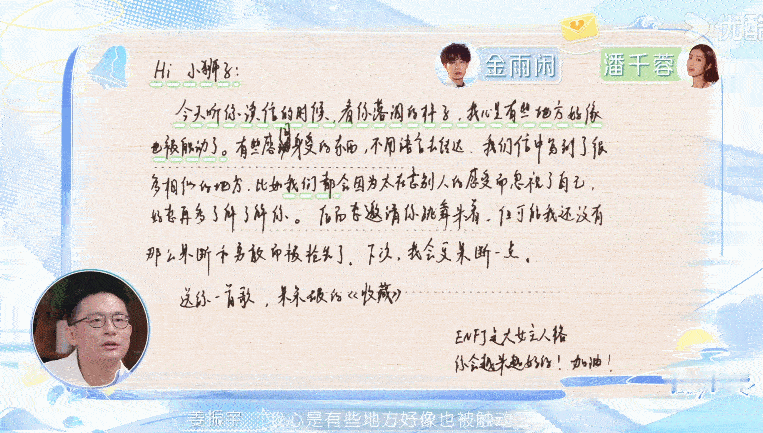 优酷
金雨闲 潘千蓉
Hi 小狮子：
今天听你读信的时候，看你落泪的样子，我心是有些地方好像
也被触动了。有些感同身受的东西，不用语言去传达。我们信中写到了很
多相似的地方，比如我们都会因为太在意别人的感受而忽视了自己，
好想再多了解了解你。在而李邀请你跳舞来着，但可能我还没有
那么果断和勇敢而被抢先了。下次，我会更果断一点。
送你一首歌，朱禾做的《收藏》
ENFJ是大女主人格
你会越来越好的！加油！
姜振宇 我心是有些地方好像也被触动